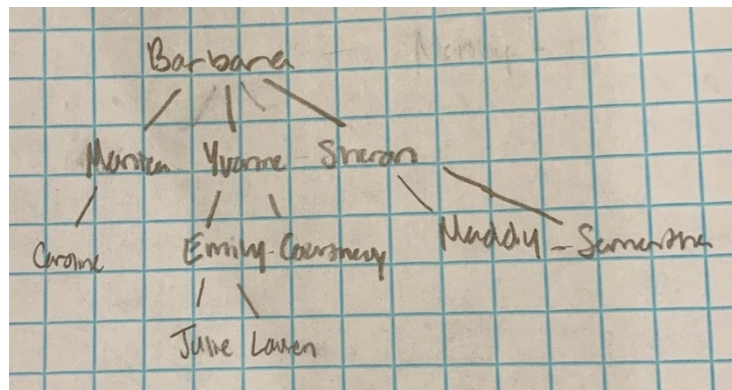 Barbara
Monica Yvonne - Sharon
Caroline Emily - Courtney Maddy - Samantha
Julie Lauren